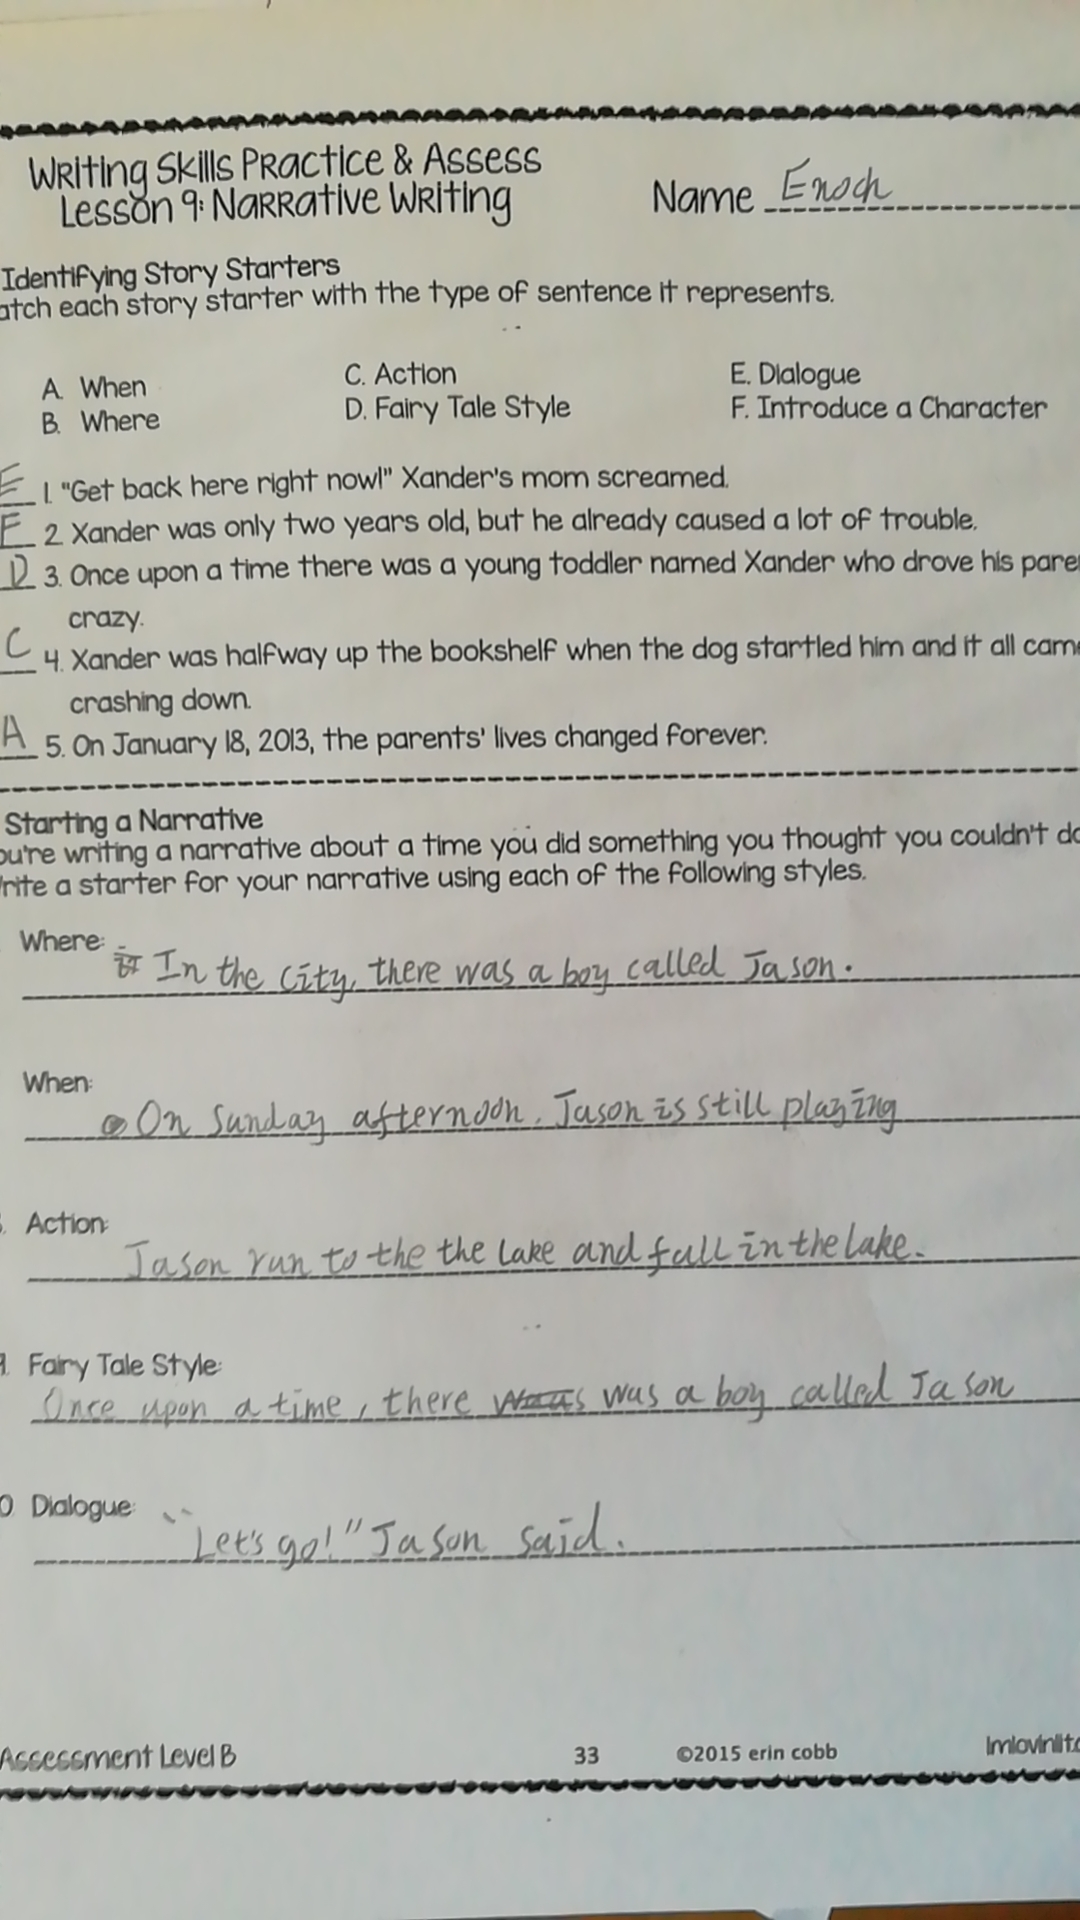 Writing Skills Practice & Assess
Lesson 9: Narrative Writing
Name Enoch
Identifying Story Starters
atch each story starter with the type of sentence it represents.
A. When
C. Action
E. Dialogue
B. Where
D. Fairy Tale Style
F. Introduce a Character
E 1. "Get back here right now!" Xander's mom screamed.
F 2. Xander was only two years old, but he already caused a lot of trouble.
D 3. Once upon a time there was a young toddler named Xander who drove his pare
crazy.
C 4. Xander was halfway up the bookshelf when the dog startled him and it all cam
crashing down.
A 5. On January 18, 2013, the parents' lives changed forever.
Starting a Narrative
ou're writing a narrative about a time you did something you thought you couldn't do
rite a starter for your narrative using each of the following styles.
Where:
In the city, there was a boy called Jason.
When:
On Sunday afternoon. Jason is still playing
Action:
Jason run to the the lake and fall in the lake.
9. Fairy Tale Style:
Once upon a time, there was a boy called Jason
0. Dialogue:
"Let's go!" Jason said.
Assessment Level B
33
©2015 erin cobb
Imlovinlit.c